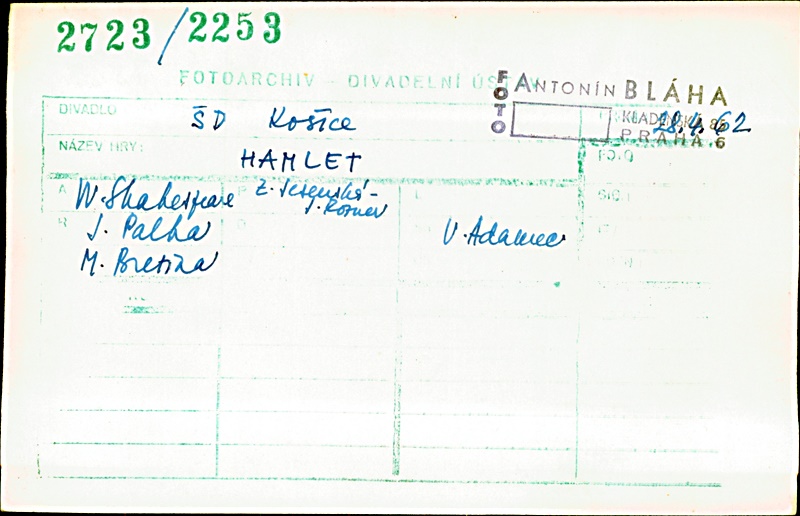 2723/2253
FOTOARCHIV - DIVADELNÍ ÚSTAV
FOTO ANTONÍN BLÁHA
KLADENSKÁ
PRAHA 6
DIVADLO ŠD Košice 28.4.62
NÁZEV HRY: HAMLET FOTO
A W. Shakespeare P Z. Jesenská - L SIGN
J. Rozner
R J. Palka V. Adamec
M. Bretina